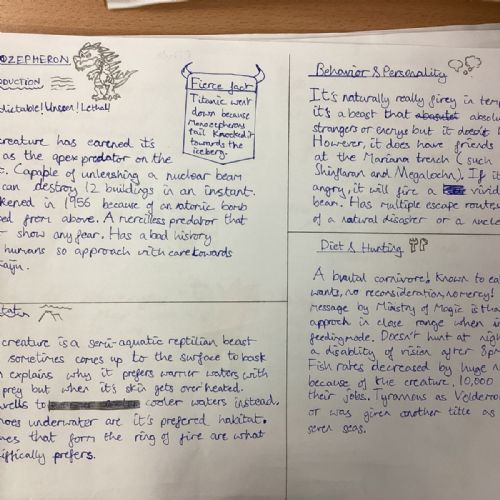 OZEPHERON
ODUCTION
dictable! Unseen! Lethal!
Fierce fact
Titanic went
down because
Monozepherons
tail knocked it
towards the
iceberg.
creature has earned it's
as the apex predator on the
t. Capable of unleashing a nuclear beam
can destroy 12 buildings in an instant.
kened in 1956 because of an atomic bomb
ped from above. A merciless predator that
show any fear. Has a bad history
humans so approach with care towards
Kaiju.
creature is a semi-aquatic reptilian beast
sometimes comes up to the surface to bask
explains why it prefers warmer waters with
prey but when it's skin gets overheated.
wells to cooler waters instead.
noes underwater are it's prefered habitat.
that form the ring of fire are what
ifically prefers.
Behavior & Personality
It's naturally really firey in tem
it's a beast that
strangers or enemys but it doesn't
However, it does have friends
at the Mariana trench (such
and
angry, it will fire a vivid
beam. Has multiple escape route
of a natural disaster or a nucle
Diet & Hunting
A brutal carnivore! Known to eat
wants, no reconsideration, no mercy!
message by Ministry of Magic is tha
approch in close range when i
feeding mode. Doesn't hunt at nigh
a disability of vision after 8p
Fish rates decreased by huge n
because of the creature. 10,000
their jobs. Tyrannous as Voldemor
or was given another title as
seven seas.